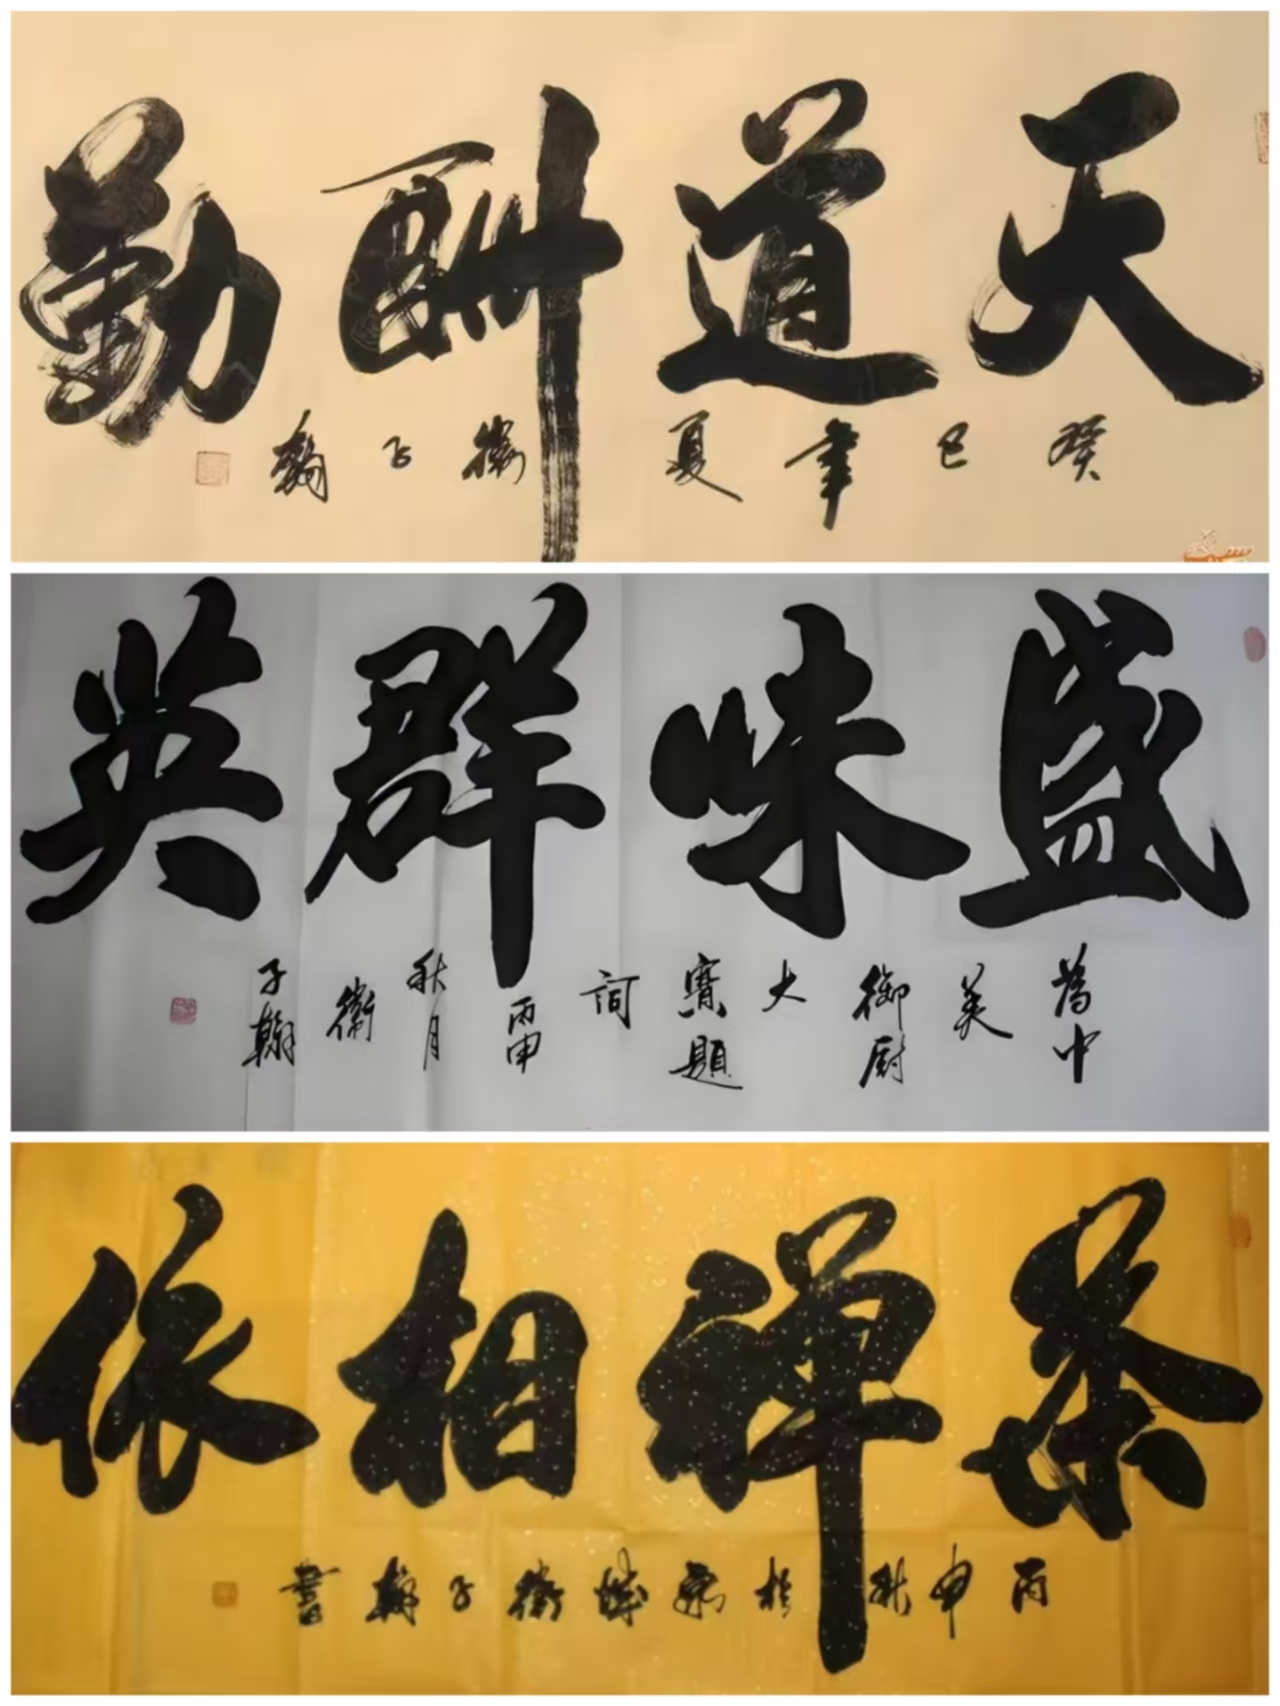 天道酬勤
癸巳年夏 衛子翰
盛味群英
為中美御厨大賓題詞 丙申秋月 衛子翰
茶禅相依
丙申秋於京城衛子翰書